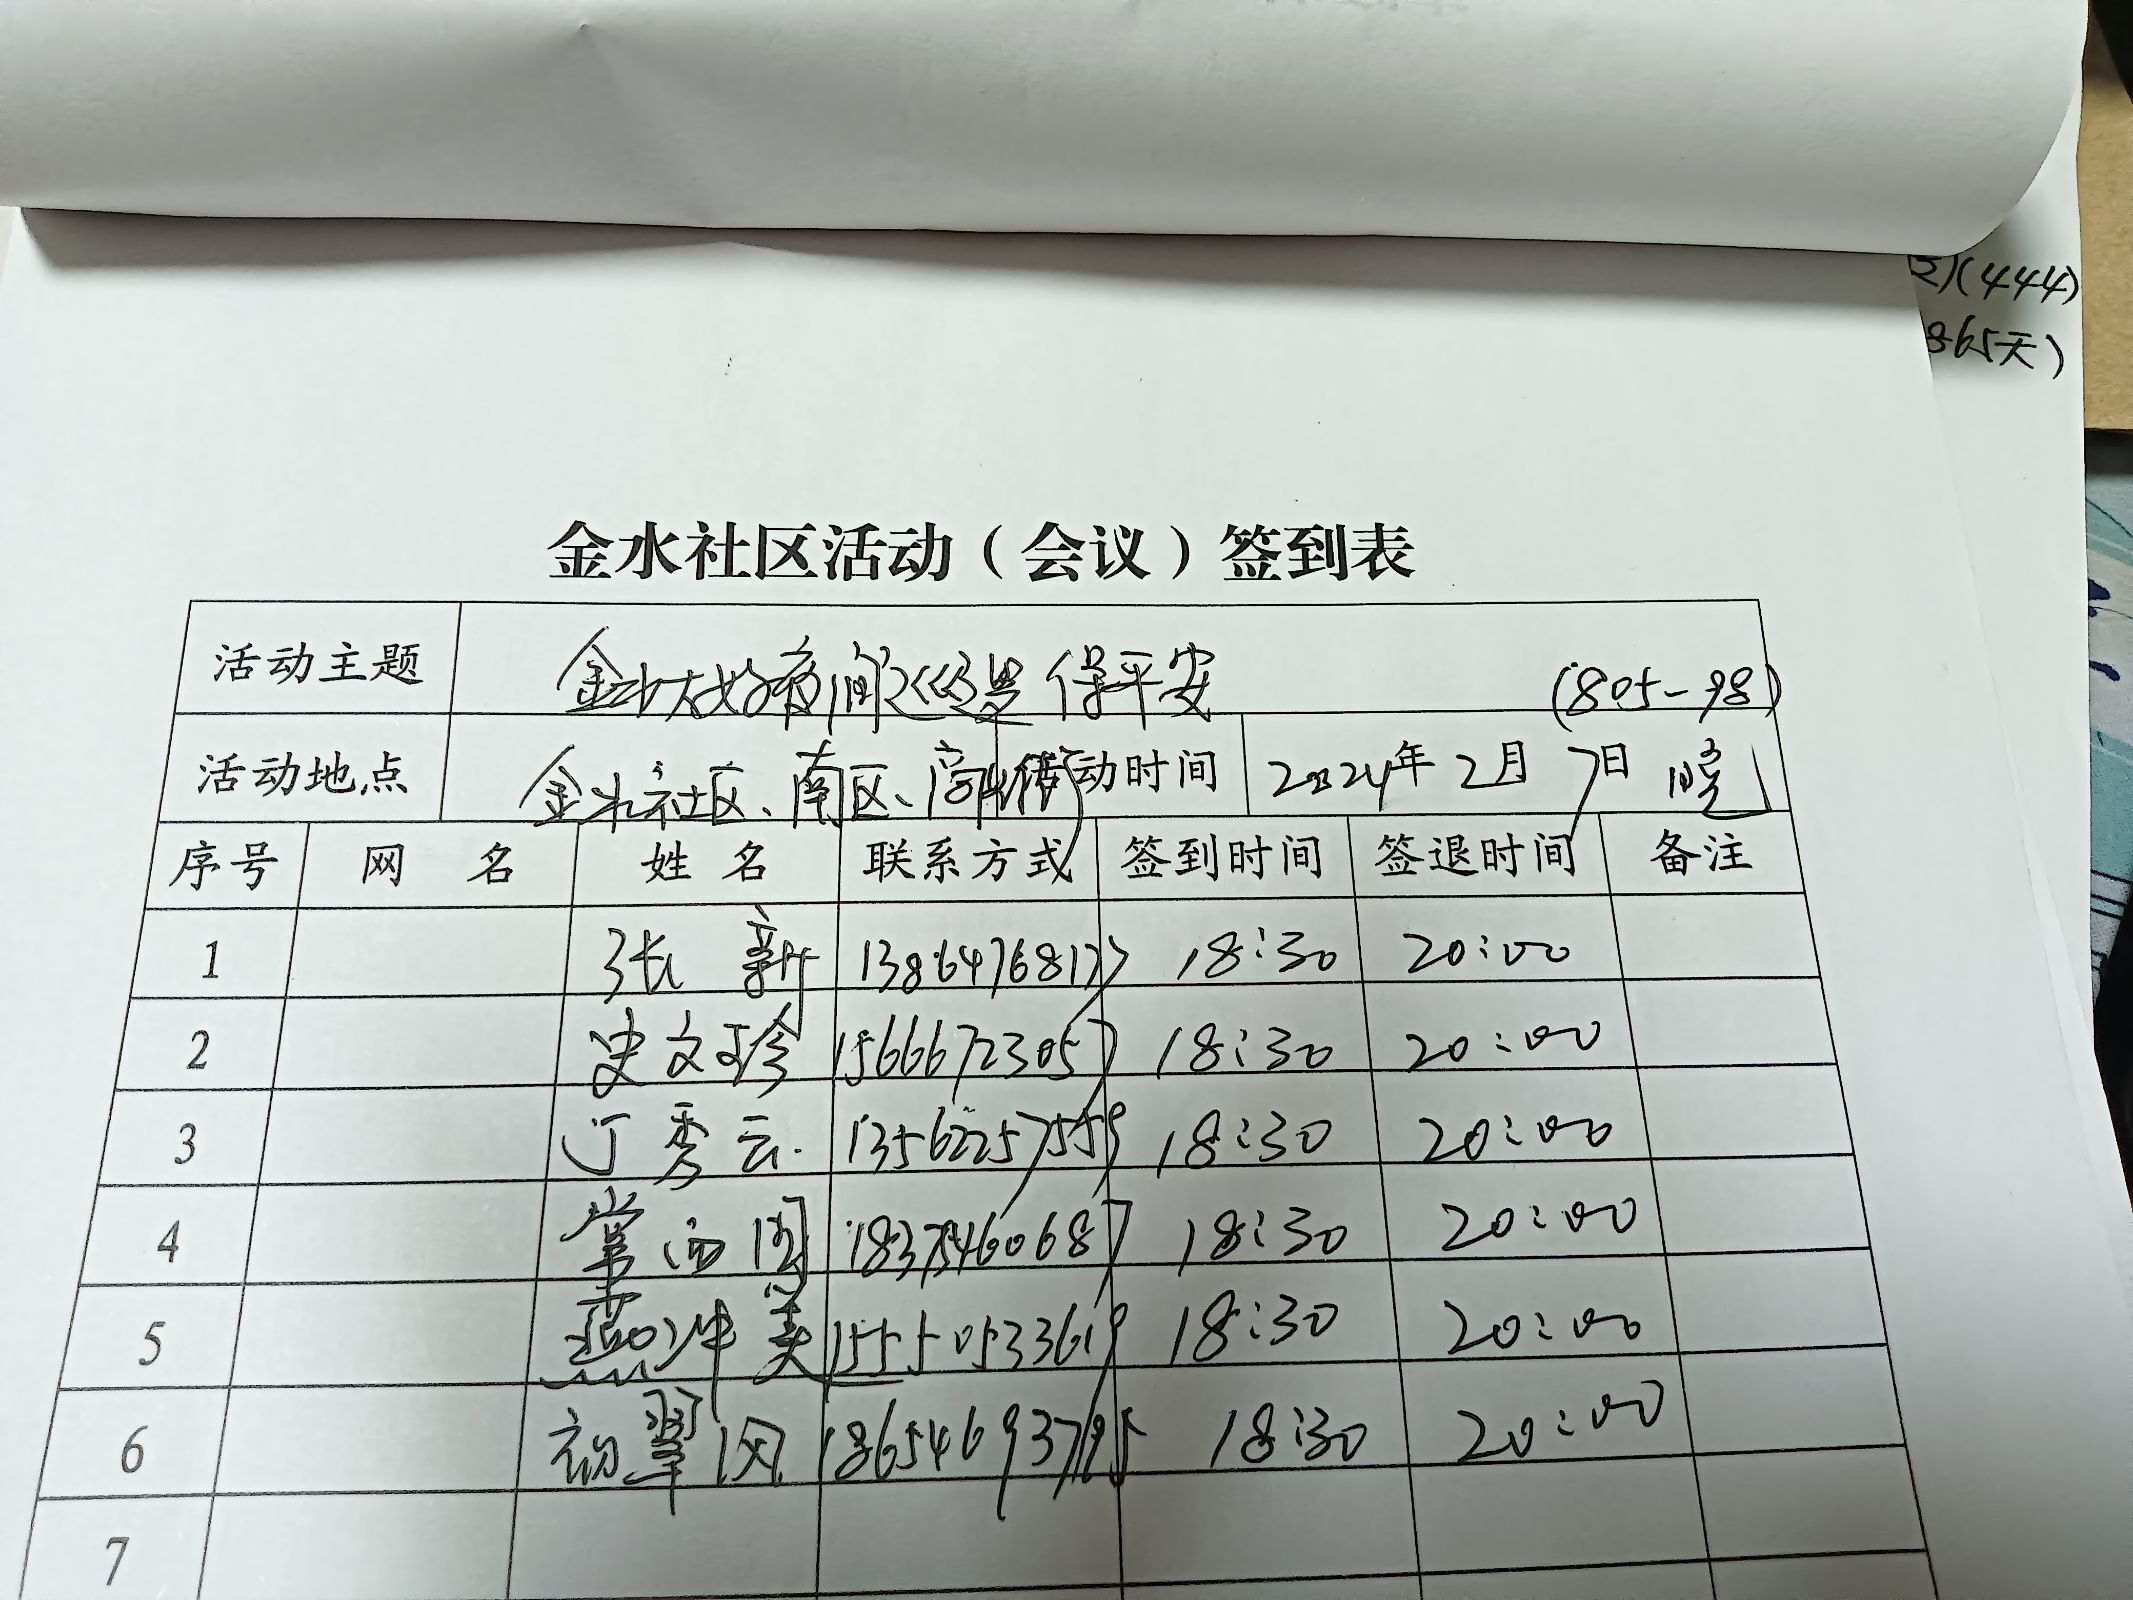 2)(444)
365天)
金水社区活动（会议）签到表
活动主题 金水大妈夜间巡逻保平安 (805-98)
活动地点 金水社区、南区、商业街 活动时间 2024年2月7日 晚
序号 网名 姓名 联系方式 签到时间 签退时间 备注
1 张新 13864768177 18:30 20:00
2 史文珍 15666723057 18:30 20:00
3 丁秀云 13562257559 18:30 20:00
4 常西 18375460687 18:30 20:00
5 燕冲美 15550533619 18:30 20:00
6 初翠 18654693795 18:30 20:00
7